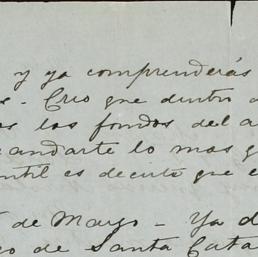 y ya comprenderás
- Creo que dentro
las fondos del a
andarte lo mas
til es decirte que
de Mayo - Ya d
o de Santa Cata